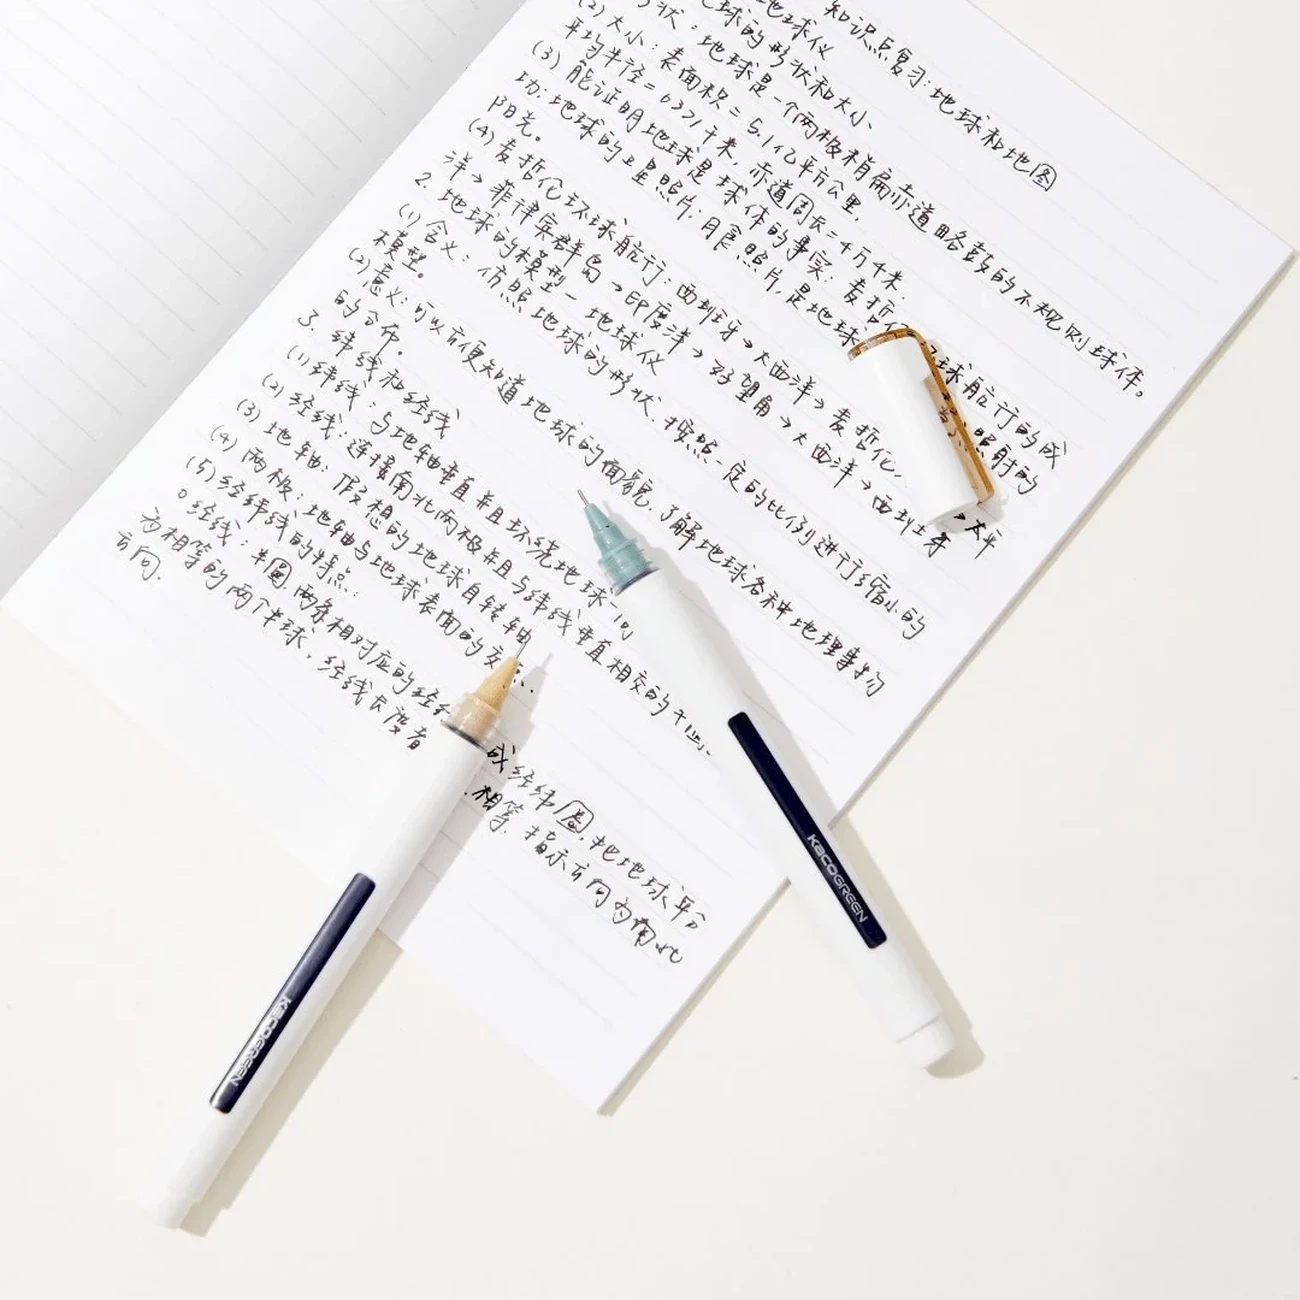 知识点复习:地球和地图
地球仪
球的形状和大小
状:地球是一个两极稍扁赤道略鼓的不规则球体。
(2)大小:表面积=5.1亿平方公里,
平均半径=6371千米,赤道周长=4万千米.
(3)能证明地球是球体的事实:麦哲伦 球航行的成
功:地球的卫星照片:月食照片,是地球 照射的
阳光。
(4)麦哲伦环球航行:西班牙→大西洋→麦哲伦 →太平
洋→菲律宾群岛→印度洋→好望角→大西洋→西班牙
2.地球的模型一地球仪
(1)含义:仿照地球的形状.按照一定的比例进行缩小的
模型。
(2)意义:可以方便知道地球的面貌.了解地球各种地理事物
的分布。
3.纬线和经线
(1)纬线:与地轴垂直并且环绕地球一
(2)经线:连接南北两极并且与纬线垂直相交的
(3)地轴:假想的地球自转轴
(4)两极:地轴与地球表面的交
(5)经纬线的特点:
经线:半圆 两条相对应的经 成经纬圈,把地球平分
为相等的两个半球.经线长度者 相等.指示方向为南北
方向.
KACOGREEN
KACOGREEN